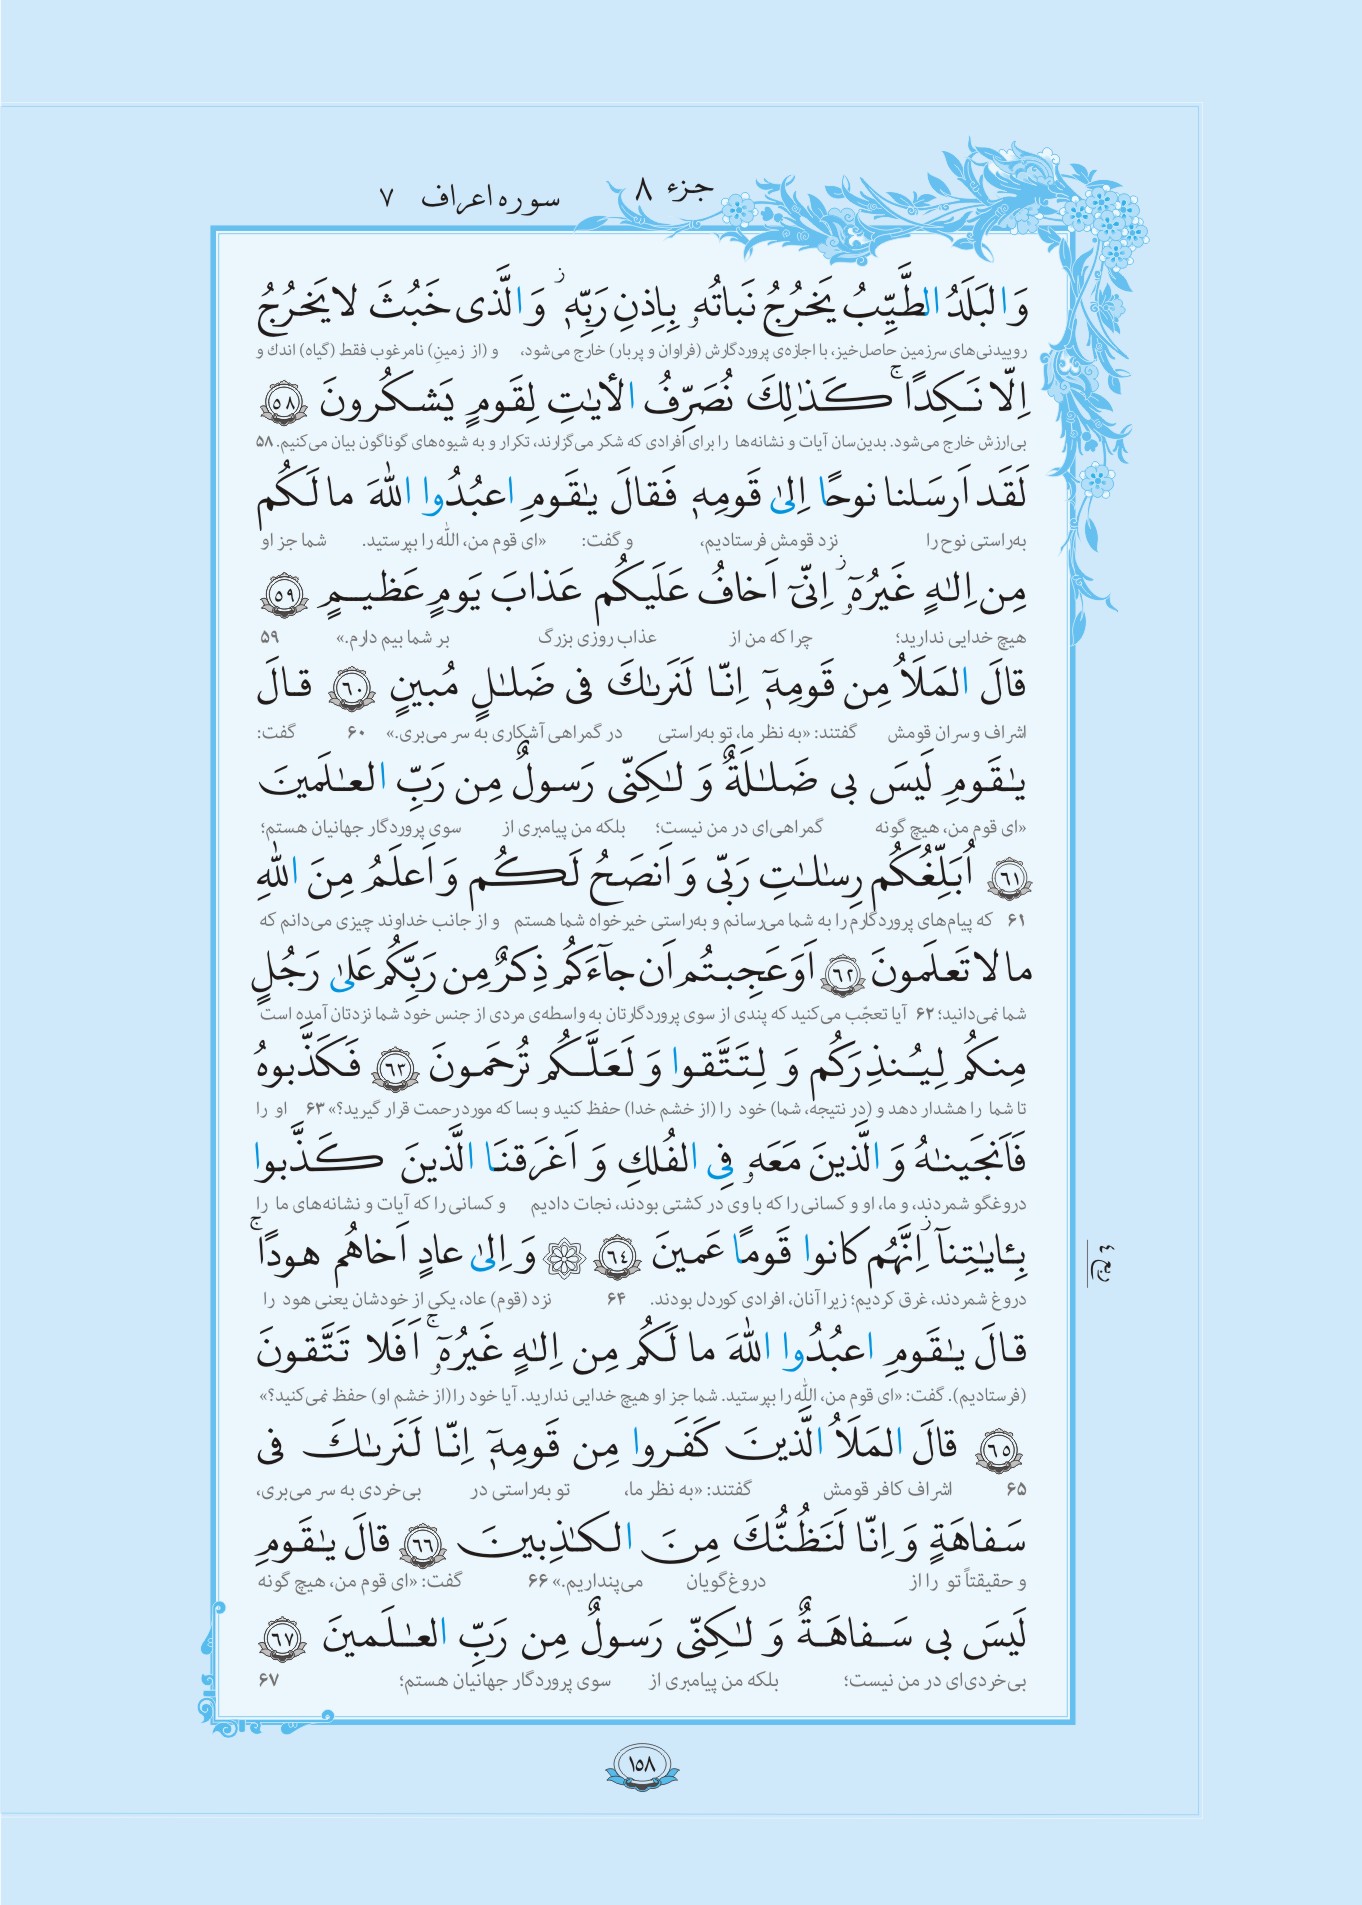 جزء ۸
سوره اعراف ۷
وَالبَلَدُ الطَّيِّبُ يَخرُجُ نَباتُهُۥ بِاِذنِ رَبِّهٖ ۖ وَالَّذى خَبُثَ لا يَخرُجُ
روییدنی‌های سرزمین حاصل‌خیز، با اجازه‌ی پروردگارش (فراوان و پربار) خارج می‌شود، و (از زمینِ) نامرغوب فقط (گیاه) اندك و
اِلّا نَكِدًا ۚ كَذٰلِكَ نُصَرِّفُ الأياٰتِ لِقَومٍ يَشكُرونَ ﴿٥٨﴾
بی‌ارزش خارج می‌شود. بدین‌سان آیات و نشانه‌ها را برای افرادی که شکر می‌گزارند، تکرار و به شیوه‌های گوناگون بیان می‌کنیم. ۵۸
لَقَد اَرسَلنا نوحًا اِلىٰ قَومِهٖ فَقالَ يٰقَومِ اعبُدُوا اللّٰهَ ما لَكُم
به‌راستی نوح را نزد قومش فرستادیم، و گفت: «ای قوم من، اللّٰه را بپرستید. شما جز او
مِن اِلٰهٍ غَيرُهُۥٓ ۖ اِنّىٓ اَخافُ عَلَيكُم عَذابَ يَومٍ عَظيمٍ ﴿٥٩﴾
هیچ خدایی ندارید؛ چرا که من از عذاب روزی بزرگ بر شما بیم دارم.» ۵۹
قالَ المَلَأُ مِن قَومِهٖٓ اِنّا لَنَرىٰكَ فى ضَلٰلٍ مُبينٍ ﴿٦٠﴾ قالَ
اشراف و سران قومش گفتند: «به نظر ما، تو به‌راستی در گمراهی آشکاری به سر می‌بری.» ۶۰ گفت:
يٰقَومِ لَيسَ بى ضَلٰلَةٌ وَ لٰكِنّى رَسولٌ مِن رَبِّ العٰلَمينَ
«ای قوم من، هیچ گونه گمراهی‌ای در من نیست؛ بلکه من پیامبری از سوی پروردگار جهانیان هستم؛
﴿٦١﴾ اُبَلِّغُكُم رِسٰلٰتِ رَبّى وَ اَنصَحُ لَكُم وَ اَعلَمُ مِنَ اللّٰهِ
۶۱ که پیام‌های پروردگارم را به شما می‌رسانم و به‌راستی خیرخواه شما هستم و از جانب خداوند چیزی می‌دانم که
ما لا تَعلَمونَ ﴿٦٢﴾ اَوَعَجِبتُم اَن جآءَكُم ذِكرٌ مِن رَبِّكُم عَلىٰ رَجُلٍ
شما نمی‌دانید؛ ۶۲ آیا تعجّب می‌کنید که پندی از سوی پروردگارتان به واسطه‌ی مردی از جنس خود شما نزدتان آمده است
مِنكُم لِيُنذِرَكُم وَ لِتَتَّقوا وَ لَعَلَّكُم تُرحَمونَ ﴿٦٣﴾ فَكَذَّبوهُ
تا شما را هشدار دهد و (در نتیجه، شما) خود را (از خشم خدا) حفظ کنید و بسا که مورد رحمت قرار گیرید؟» ۶۳ او را
فَاَنجَينٰهُ وَ الَّذينَ مَعَهُۥ فِى الفُلكِ وَ اَغرَقنَا الَّذينَ كَذَّبوا
دروغگو شمردند، و ما، او و کسانی را که با وی در کشتی بودند، نجات دادیم و کسانی را که آیات و نشانه‌های ما را
بِـٔايٰتِنآ ۖ اِنَّهُم كانوا قَومًا عَمينَ ﴿٦٤﴾ ۞ وَ اِلىٰ عادٍ اَخاهُم هودًا ۚ
دروغ شمردند، غرق کردیم؛ زیرا آنان، افرادی کوردل بودند. ۶۴ نزد (قوم) عاد، یکی از خودشان یعنی هود را
ربع ٤
قالَ يٰقَومِ اعبُدُوا اللّٰهَ ما لَكُم مِن اِلٰهٍ غَيرُهُۥٓ ۚ اَفَلا تَتَّقونَ
(فرستادیم). گفت: «ای قوم من، اللّٰه را بپرستید. شما جز او هیچ خدایی ندارید. آیا خود را (از خشم او) حفظ نمی‌کنید؟»
﴿٦٥﴾ قالَ المَلَأُ الَّذينَ كَفَروا مِن قَومِهٖٓ اِنّا لَنَرىٰكَ فى
۶۵ اشراف کافر قومش گفتند: «به نظر ما، تو به‌راستی در بی‌خردی به سر می‌بری،
سَفاهَةٍ وَ اِنّا لَنَظُنُّكَ مِنَ الكٰذِبينَ ﴿٦٦﴾ قالَ يٰقَومِ
و حقیقتاً تو را از دروغ‌گویان می‌پنداریم.» ۶۶ گفت: «ای قوم من، هیچ گونه
لَيسَ بى سَفاهَةٌ وَ لٰكِنّى رَسولٌ مِن رَبِّ العٰلَمينَ ﴿٦٧﴾
بی‌خردی‌ای در من نیست؛ بلکه من پیامبری از سوی پروردگار جهانیان هستم؛ ۶۷
١٥٨